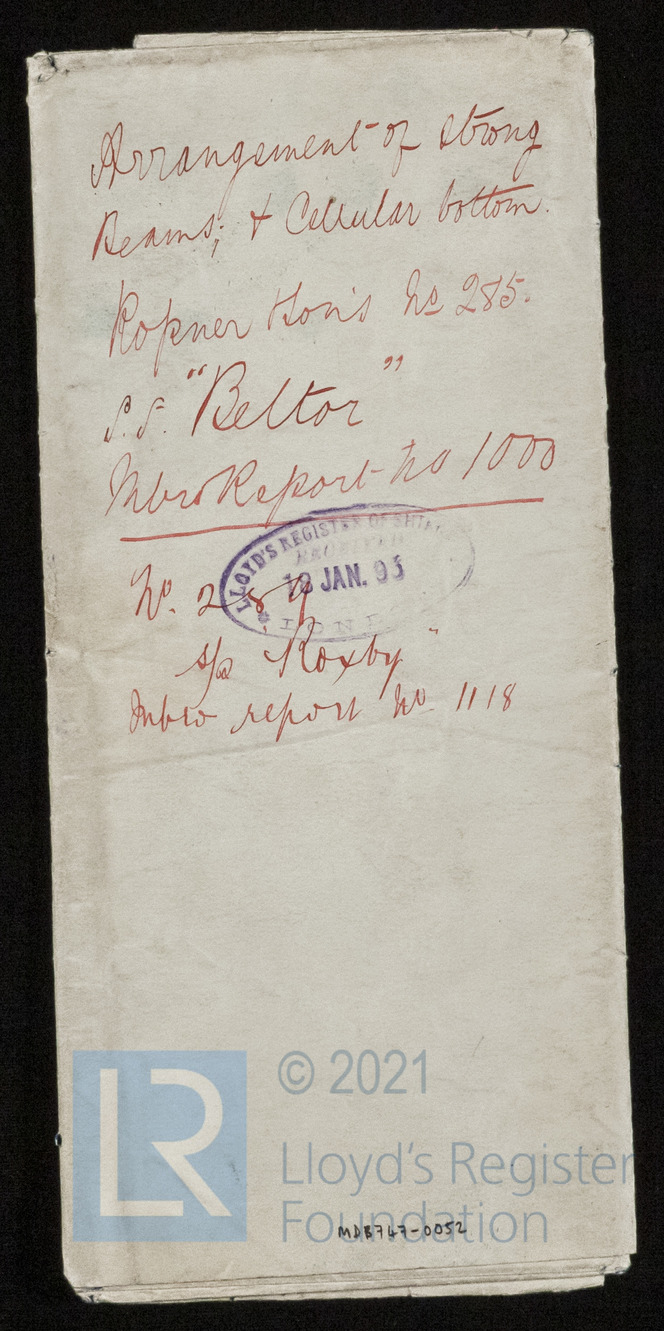 Arrangement of strong
Beams; & Cellular bottom.
Ropner & Son's No 285.
S.S. "Beltor"
Mbro Report No 1000
LLOYD'S REGISTER OF SHIPPING
RECEIVED
18 JAN. 93
LOND
No. 289
s/s Roxby"
Mbro report No 1118
LR
© 2021
Lloyd's Register
Foundation
MDB747-0052